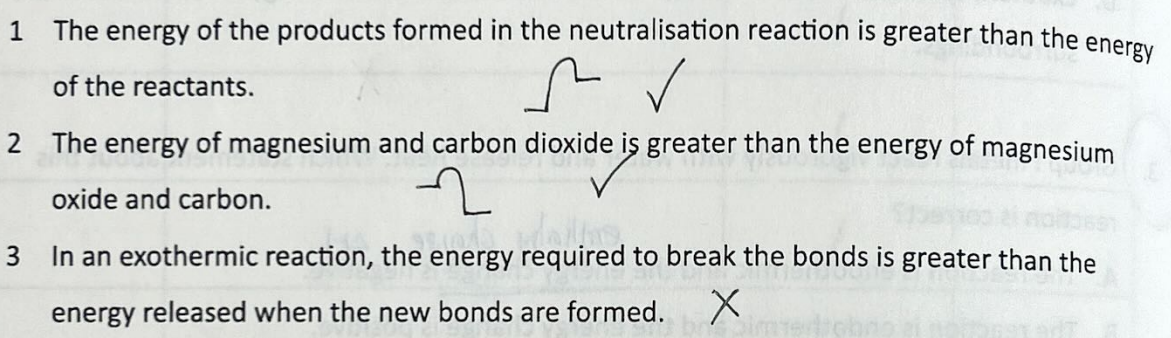 1 The energy of the products formed in the neutralisation reaction is greater than the energy
of the reactants. ✓
2 The energy of magnesium and carbon dioxide is greater than the energy of magnesium
oxide and carbon. ✓
3 In an exothermic reaction, the energy required to break the bonds is greater than the
energy released when the new bonds are formed. X